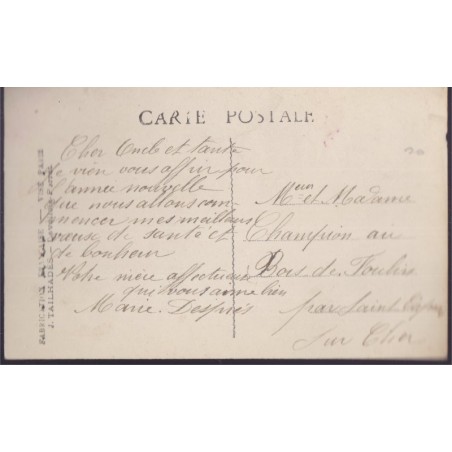 CARTE POSTALE
Cher Oncle et tante
je vien vous affrir pour
l'année nouvelle
que nous allons com
mencer mes meilleurs
vœux de santé et
de bonheur
Votre nièce affectueuse
qui vous aime bien
Marie Després
Mr et Madame
Champion au
Bois de
par Saint
sur Cher
J. TAILHADES